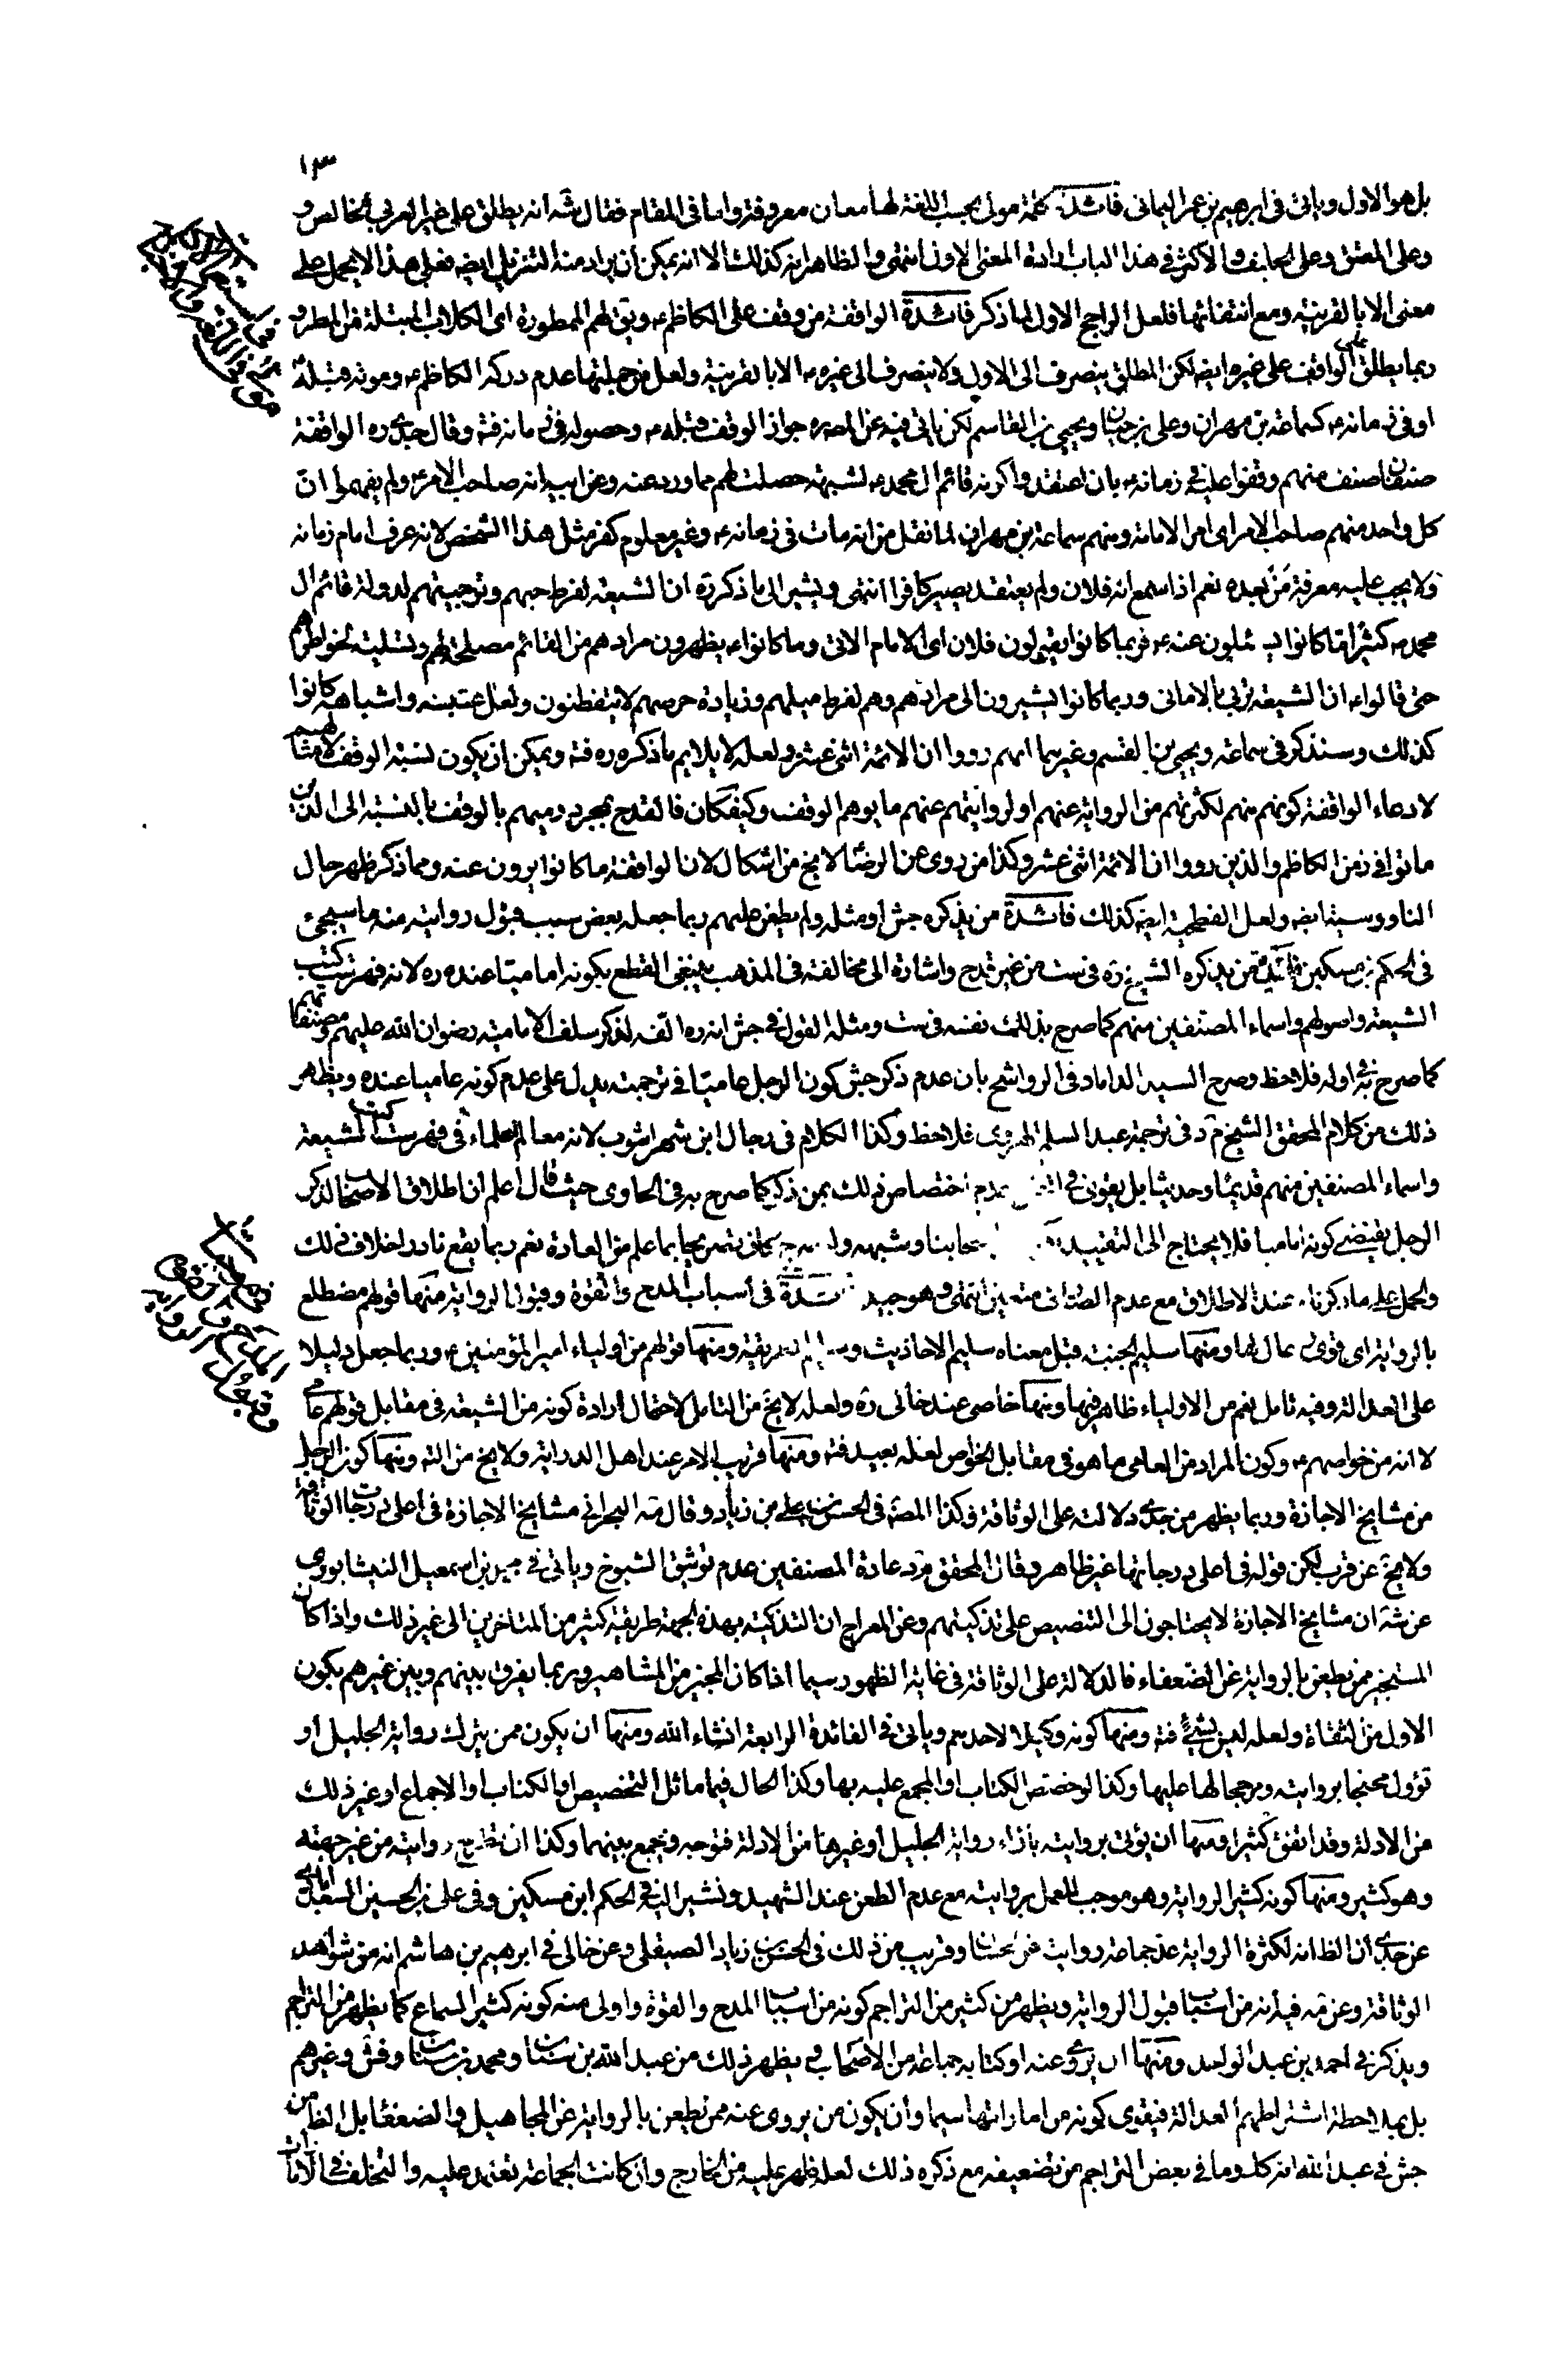 ١٣
بل هو الاول وياتى فى ابرهيم بن عمر اليمانى فائدة كلمة مولى بحسب اللغة لها معان معروفة واما فى المقام فقال شه انه يطلق على غير العربى الخالص و
وعلى المعتق وعلى الحليف والاكثر فى هذا الباب ارادة المعنى الاول انتهى والظاهر انه كذلك الا انه يمكن ان يراد منه النزيل ايضه فعلى هذا لا يحمل على
معنى الا بالقرينة ومع انتفائها فلعل الراجح الاول لما ذكر فائدة الواقفة من وقف على الكاظم ع ويق لهم الممطورة اى الكلاب المبتلة من المطر و
ربما يطلق الواقف على غيره ايضه لكن المطلق ينصرف الى الاول ولا ينصرف الى غيره الا بالقرينة ولعل من جملتها عدم دركه الكاظم ع وموته قبله
او فى زمانه ع كسماعة بن مهران وعلى بن حيان ويحيى بن القاسم لكن ياتى فيه عن المصره جواز الوقف قبله ع وحصوله فى زمانه فته وقال جدى ره الواقفة
صنفان صنف منهم وقفوا عليه فى زمانه ع بان اعتقدوا كونه قائم ال محمد ع لشبهة حصلت لهم مما ورد عنه وعن ابيه انه صاحب الامر ع ولم يفهموا ان
كل واحد منهم صاحب الامر اى امر الامامة ومنهم سماعة بن مهران لما نقل من انه مات فى زمانه ع وغير معلوم كفر مثل هذا الشخص لانه عرف امام زمانه
ولا يجب عليه معرفة من بعده نعم اذا سمع انه فلان ولم يعتقد يصير كافرا انتهى ويشير الى ما ذكره ان الشيعة لفرط حبهم وترجيتهم لدولة قائم ال
محمد ع كثيرا ما كانوا يسئلون عنه ع فربما كانوا يقولون فلان اى الامام الاتى وما كانوا ع يظهرون مرادهم من القائم مصلحة لهم وتسلية لخواطرهم
حتى قالوا ع ان الشيعة تربى بالامانى وربما كانوا يشيرون الى مرادهم وهم لفرط ميلهم وزيادة حرصهم لا يتفطنون ولعل عنبسه واشباهه كانوا
كذلك وسنذكر فى سماعه ويحيى بن القسم وغيرهما انهم رووا ان الائمة اثنى عشر ولعله لا يلايم ما ذكره ره فته ويمكن ان يكون نسبة الوقف لامثالهم
لادعاء الواقفة كونهم منهم لكثرتهم من الرواية عنهم او لروايتهم عنهم ما يوهم الوقف وكيفكان فالقدح بمجرد رميهم بالوقف بالنسبة الى الذين
ماتوا فى زمن الكاظم والذين رووا ان الائمة اثنى عشر وكذا من روى عن الرضا لا يخ من اشكال لان الواقفة ما كانوا يروون عنه ومما ذكر ظهر حال
الناووسية ايضه ولعل الفطحية ايضه كذلك فائدة من يذكره جش او مثله ولم يطعن عليهم ربما جعله بعض سبب قبول روايته منه ما سيجىء
فى الحكم بن مسكين فائدة من يذكره الشيخ ره فى ست من غير قدح واشارة الى مخالفة فى المذهب ينبغى القطع بكونه اماميا عنده ره لانه فهرست كتب
الشيعة واصولهم واسماء المصنفين منهم كما صرح بذلك نفسه فى ست ومثله القول فى جش انه ره الفه لذكر سلف الامامية رضوان الله عليهم ومصنفاتهم
كما صرح به فى اوله فلاحظ وصرح السيد الداماد فى الرواشح بان عدم ذكر جش كون الرجل عاميا فى ترجمته يدل على عدم كونه عاميا عنده ويظهر
ذلك من كلام المحقق الشيخ مد فى ترجمة عبد السلم الهروى فلاحظ وكذا الكلام فى رجال ابن شهراشوب لانه معالم العلماء فى فهرست كتب الشيعة
واسماء المصنفين منهم قديما وحديثا بل يقوى فى عدم اختصاص ذلك بمن ذكر كما صرح به فى الحاوى حيث قال اعلم ان اطلاق الاصحاب لذكر
الرجل يقتضى كونه اماميا فلا يحتاج الى التقييد اصحابنا وشبهه بما علم من العادة نعم ربما يقع نادرا خلاف ذلك
والحمل على ما ذكرنا عند الاطلاق مع عدم الصارف متعين انتهى وهو جيد فائدة فى اسباب المدح والقوة وقبول الرواية منها قولهم مضطلع
بالرواية اى قوى عال لها ومنها سليم الجنبة قيل معناه سليم الاحاديث وسليم الطريقة ومنها قولهم من اولياء امير المؤمنين ع وربما جعل دليلا
على العدالة وفيه تامل نعم من الاولياء ظاهر فيها ومنها خاصى عند خالى ره ولعله لا يخ من التامل لاحتمال ارادة كونه من الشيعة فى مقابل قولهم عامى
لا انه من خواصهم ع وكون المراد من العامى ما هو فى مقابل الخواص لعله بعيد فته ومنها قريب الامر عند اهل الدراية ولا يخ من التامل ومنها كون الرجل
من مشايخ الاجازة وربما يظهر من جدى دلالته على الوثاقة وكذا المصه فى الحسن بن على بن زياد وقال مه البحرانى مشايخ الاجازة فى اعلى درجات الوثاقة
ولا يخ عن قرب لكن قوله فى اعلى درجاتها غير ظاهر وقال المحقق مد عادة المصنفين عدم توثيق الشيوخ وياتى فى محمد بن اسمعيل النيشابورى
عن شه ان مشايخ الاجازة لا يحتاجون الى التنصيص على تذكيتهم وعن المعراج ان التذكية بهذه الجهة طريقة كثير من المتاخرين الى غير ذلك واذا كان
المستجيز ممن يطعن بالرواية عن الضعفاء فالدلالة على الوثاقة فى غاية الظهور سيما اذا كان المجيز من المشاهير وربما يفرق بينهم وبين غيرهم بكون
الاول من الثقاة ولعله ليس بشىء فته ومنها كونه وكيلا لاحدهم وياتى فى الفائدة الرابعة انشاء الله ومنها ان يكون ممن يترك رواية الجليل او
تؤول محتجا بروايته ومرجحا لها عليها وكذا لو خصص الكتاب او المجمع عليه بها وكذا الحال فيما ماثل التخصيص او الكتاب او الاجماع او غير ذلك
من الادلة وقد اتفق كثيرا ومنها ان يؤتى بروايته بازاء رواية الجليل او غيرها من الادلة فتوجه ويجمع بينهما وكذا ان تطرح روايته من غير جهته
وهو كثير ومنها كونه كثير الرواية وهو موجب للعمل بروايته مع عدم الطعن عند الشهيد ونشير اليه فى الحكم ابن مسكين وفى على بن الحسين السعدابادى
عن جدى ان الظ انه لكثرة الرواية عد جماعة روايته من الحسان وقريب من ذلك فى الحسن بن زياد الصيقلى وعن خالى فى ابرهيم بن هاشم انه من شواهد
الوثاقة وعن مه فيه انه من اسباب قبول الرواية ويظهر من كثير من التراجم كونه من اسباب المدح والقوة واولى منه كونه كثير السماع كما يظهر من التراجم
ويذكر فى احمد بن عبد الواحد ومنها ان يروى عنه او كتابه جماعة من الاصحاب ويظهر ذلك من عبد الله بن سنان ومحمد بن سنان وفش وغيرهم
بل بملاحظة اشتراطهم العدالة فيقوى كونه من اماراتها سيما وان يكون من يروى عنه ممن يطعن بالرواية عن المجاهيل والضعفاء بل الظ من
جش فى عبد الله انه كك وما فى بعض التراجم من تضعيفه مع ذكره ذلك لعله ظهر عليه من الخارج وان كانت الجماعة تعتمد عليه والتخلف فى الامارات